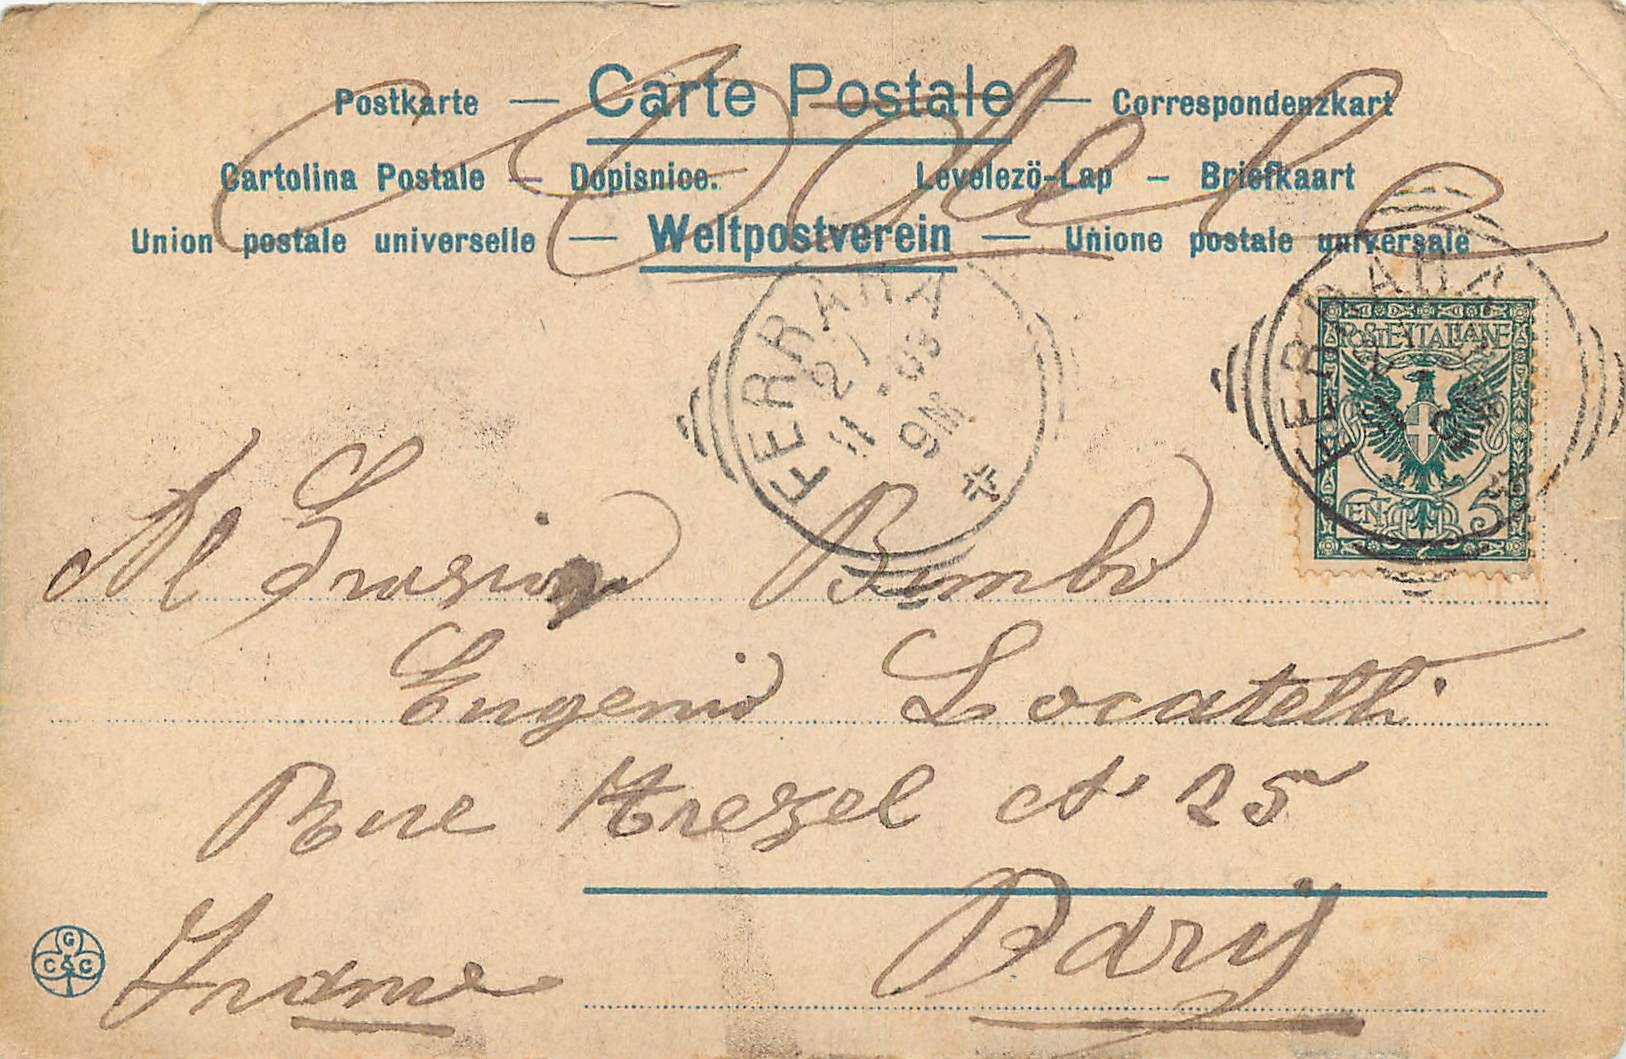 Postkarte — Carte Postale — Correspondenzkart
Cartolina Postale — Dopisnice. Levelezö-Lap — Briefkaart
Union postale universelle — Weltpostverein — Unione postale universale
FERRARA
21
11 - 03
9M
FERRARA
9M
POSTE ITALIANE
CENT 5
Al Grasioso Bimbo
Eugenio Locatelli
Rue Trezel N° 25
Pary
France
G
C & C